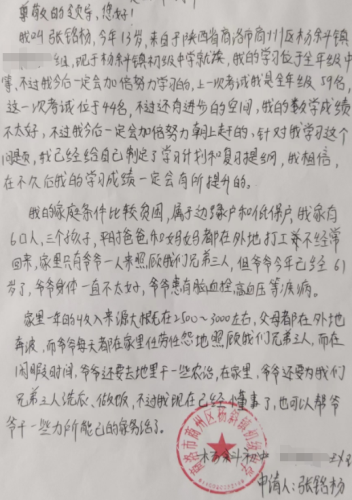 尊敬的叔叔，您好！
我叫张铭杨，今年13岁，来自于陕西省商洛市商州区杨斜镇
组，现于杨斜镇初级中学就读，我的学习位于全年级中
等，不过我今后一定会加倍努力学习的，上一次考试我是全年级59名，
这一次考试位于44名，不过还有进步的空间，我的数学成绩
不太好，不过我今后一定会加倍努力朝上赶的，针对我学习这个
问题，我已经给自己制定了学习计划和复习提纲，我相信，
在不久后我的学习成绩一定会有所提升的。
我的家庭条件比较贫困，属于边缘户和低保户，我家有
6口人，三个孩子，平时爸爸和妈妈都在外地打工并不经常
回来，家里只有爷爷一人来照顾我们兄弟三人，但爷爷今年已经61
岁了，爷爷身体一直不太好，爷爷患有脑血栓，高血压等疾病。
家里一年的收入来源大概在2500～3000左右，父母都在外地
奔波，而爷爷每天都在家里任劳任怨地照顾我们兄弟三人，而在
闲暇时间，爷爷还要去地里干一些农活，在家里，爷爷还要为我们
兄弟三人洗衣、做饭，不过我现在已经懂事了，也可以帮爷
爷干一些力所能己的家务活了。
杨斜初中
申请人：张铭杨